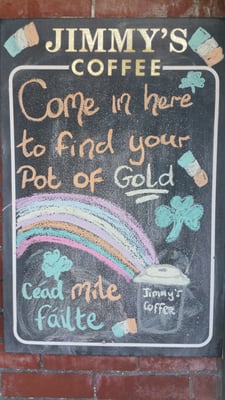 JIMMY'S
COFFEE
Come in here
to find your
Pot of Gold
Cead mile
fáilte
Jimmy's
Coffee